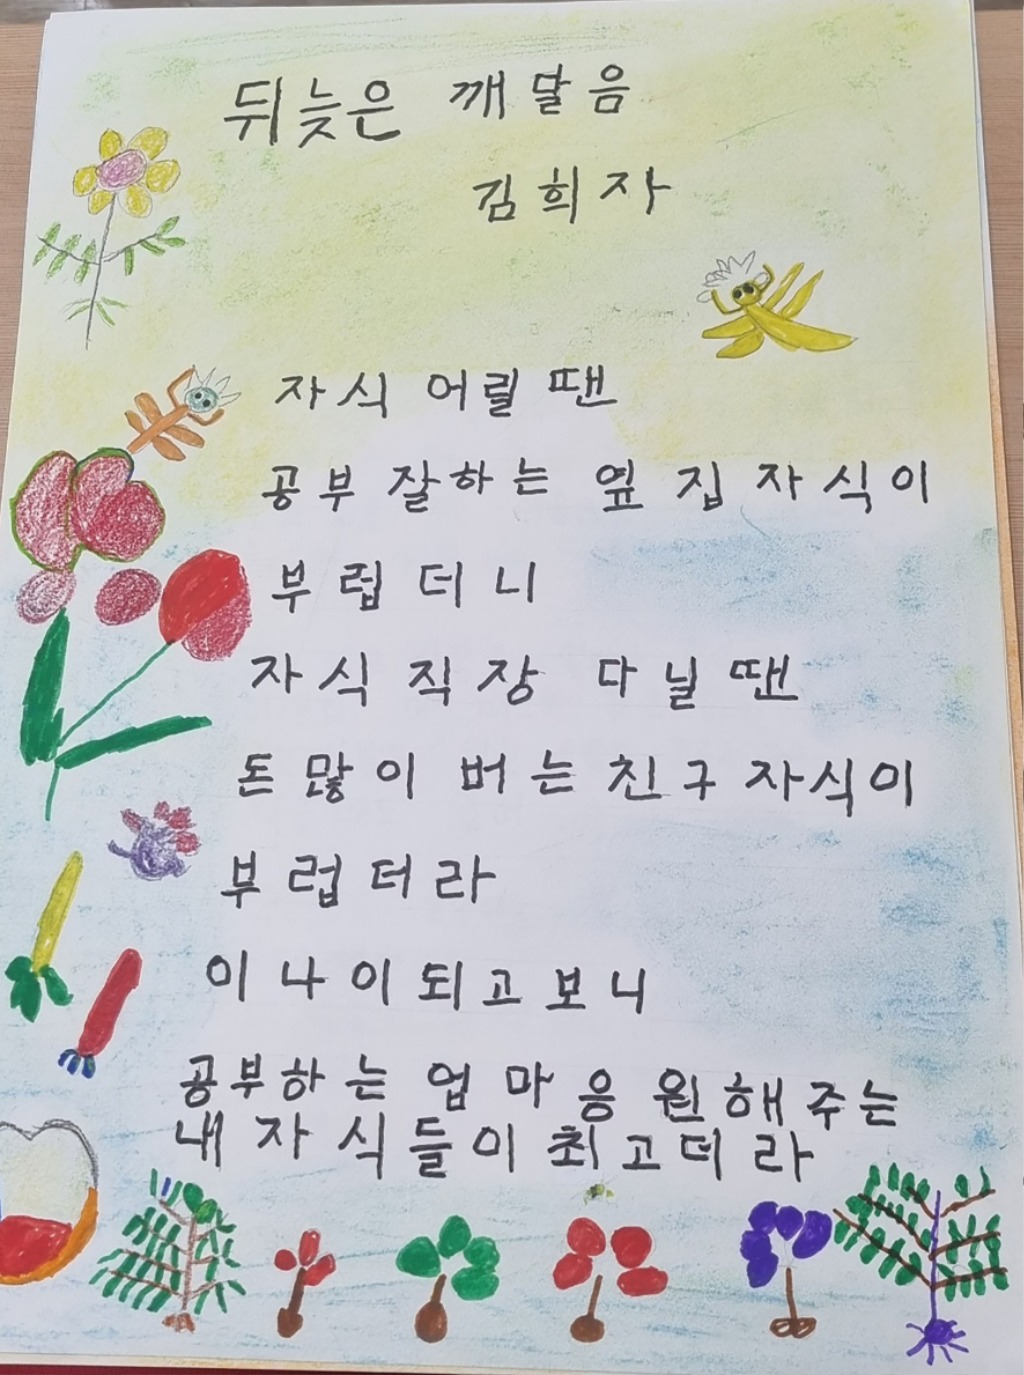 뒤늦은 깨달음
김희자
자식 어릴 땐
공부 잘하는 옆집 자식이
부럽더니
자식 직장 다닐 땐
돈 많이 버는 친구 자식이
부럽더라
이 나이 되고 보니
공부하는 업마 응원해주는
내 자식들이 최고데라